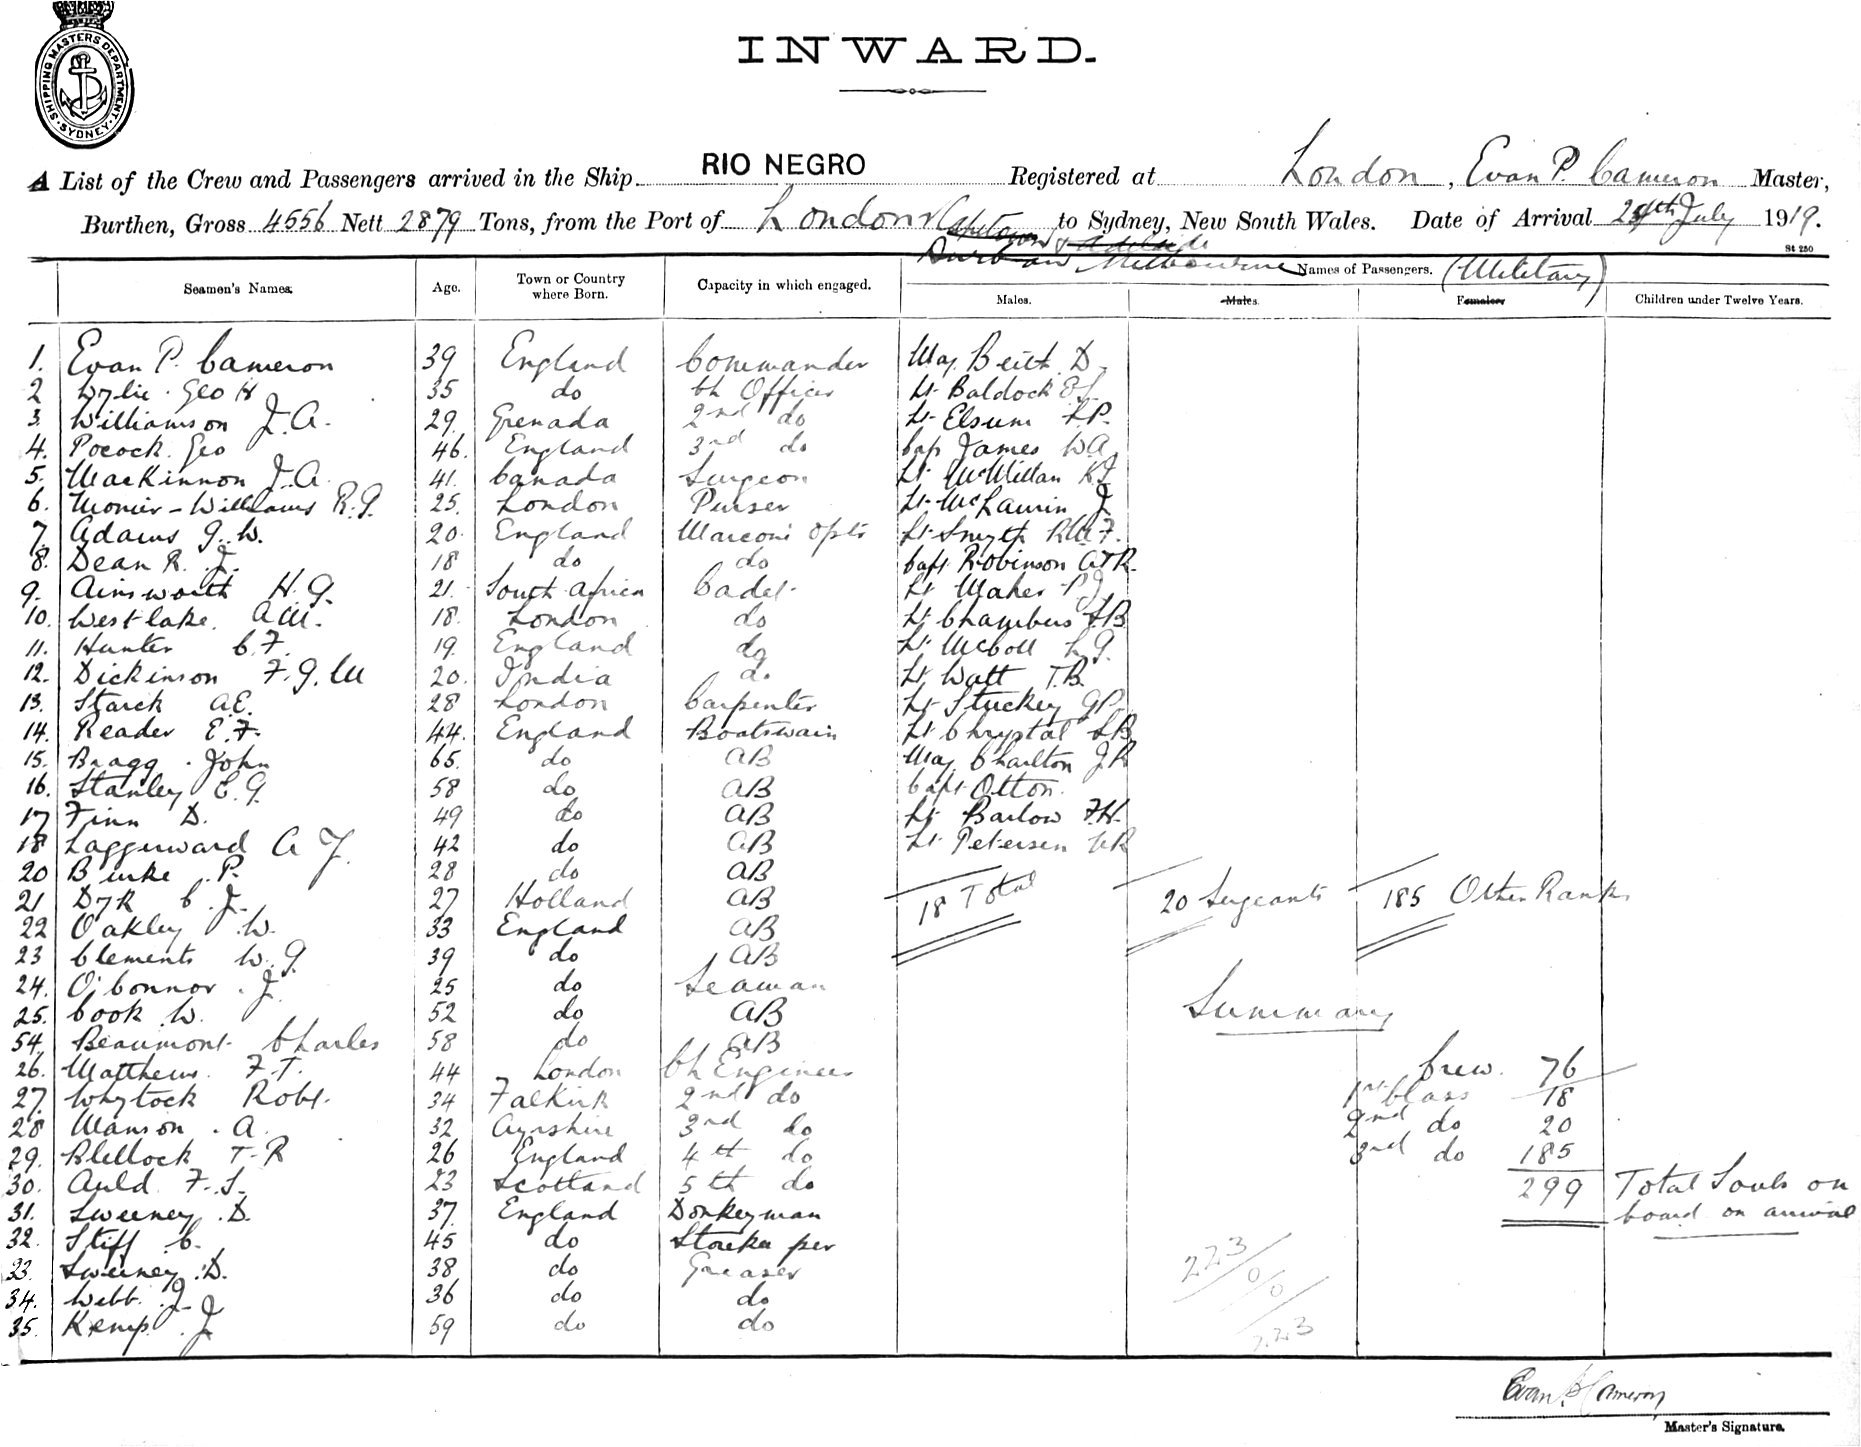 SHIPPING MASTERS DEPARTMENT. SYDNEY.
INWARD.
A List of the Crew and Passengers arrived in the Ship RIO NEGRO Registered at London, Evan P. Cameron Master,
Burthen, Gross 4556 Nett 2879 Tons, from the Port of London Capetown to Sydney, New South Wales. Date of Arrival 24th July 1919.
& Adelaide
St 250
Durban Melbourne
Names of Passengers. (Military)
Seamen's Names. Age. Town or Country where Born. Capacity in which engaged. Males. Males. Females Children under Twelve Years.
1. Evan P. Cameron 39 England Commander Maj Beith D.
2 Wylie Geo H 35 do Ch Officer Lt Baldock
3. Williamson J.A. 29. Grenada 2nd do Lt Elsum
4. Pocock Geo 46. England 3rd do Capt James W.A.
5. MacKinnon J.A. 41. Canada Surgeon Lt McMillan
6. Monier-Williams R.G. 25. London Purser Lt McLaurin J
7. Adams G.W. 20. England Marconi Optr Lt Smyth
8. Dean R. J. 18 do do Capt Robinson ATR.
9. Ainsworth H.G. 21. South Africa Cadet Lt Maher P.J.
10. Westlake A.M. 18. London do Lt Chambers
11. Hunter C.F. 19. England do Lt McColl
12. Dickinson F.G.M 20. India do Lt Watt T.B.
13. Starck A.E. 28 London Carpenter Lt Stuckey G.P.
14. Reader E.F. 44. England Boatswain Lt Chrystal
15. Bragg John 65. do AB Maj Charlton J.R
16. Stanley E.G. 58 do AB Capt Otton.
17 Finn D. 49 do AB Lt Barlow F.H.
18 Laggerward A J. 42 do AB Lt Petersen
20 Burke P. 28 do AB
21 Dyk C.J. 27 Holland AB 18 Total 20 Sergeants 185 Other Ranks
22 Oakley W. 33 England AB
23 Clements W.G 39 do AB
24. O'Connor J. 25 do Seaman
25. Cook W. 52 do AB Summary
54. Beaumont Charles 58 do AB
26. Matthews F.T. 44 London Ch Engineer Crew. 76
27. Whytock Robt. 34 Falkirk 2nd do 1st Class 18
28 Manson A. 32 Ayrshire 3rd do 2nd do 20
29. Blellock T.R 26 England 4th do 3rd do 185
30. Auld F.S. 23 Scotland 5th do 299 Total Souls on
31. Sweeney D. 37. England Donkeyman board on arrival
32. Stiff C. 45 do
33. Sweeney D. 38 do Greaser 223
34. Webb J. 36 do do 0 0
35. Kemp J 59 do do 223
Evan P Cameron
Master's Signature.